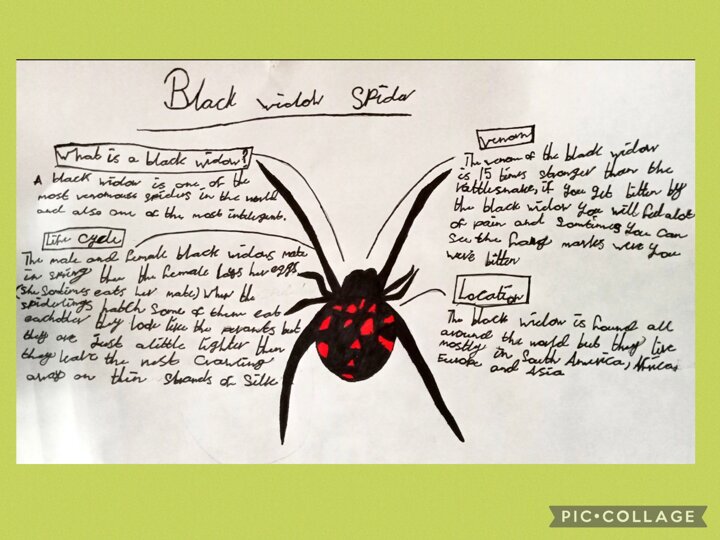 Black widow Spider
What is a black widow?
A black widow is one of the
most venomous spiders in the world
and also one of the most intelegent.
Life cycle
The male and female black widows mate
in spring then the female lays her eggs
(she somtimes eats her mate) When the
spiderlings hatch some of them eat
eachother they look like the perants but
they are just a little lighter then
they leave the nest crawling
away on thin strands of silk
venom
The venom of the black widow
is 15 times stronger than the
rattlesnake, if you get bitten by
the black widow you will feel alot
of pain and sometimes you can
see the fang marks were you
were bitten
Location
The black widow is found all
around the world but they live
mostly in South America, Africa
Europe and Asia
PIC•COLLAGE